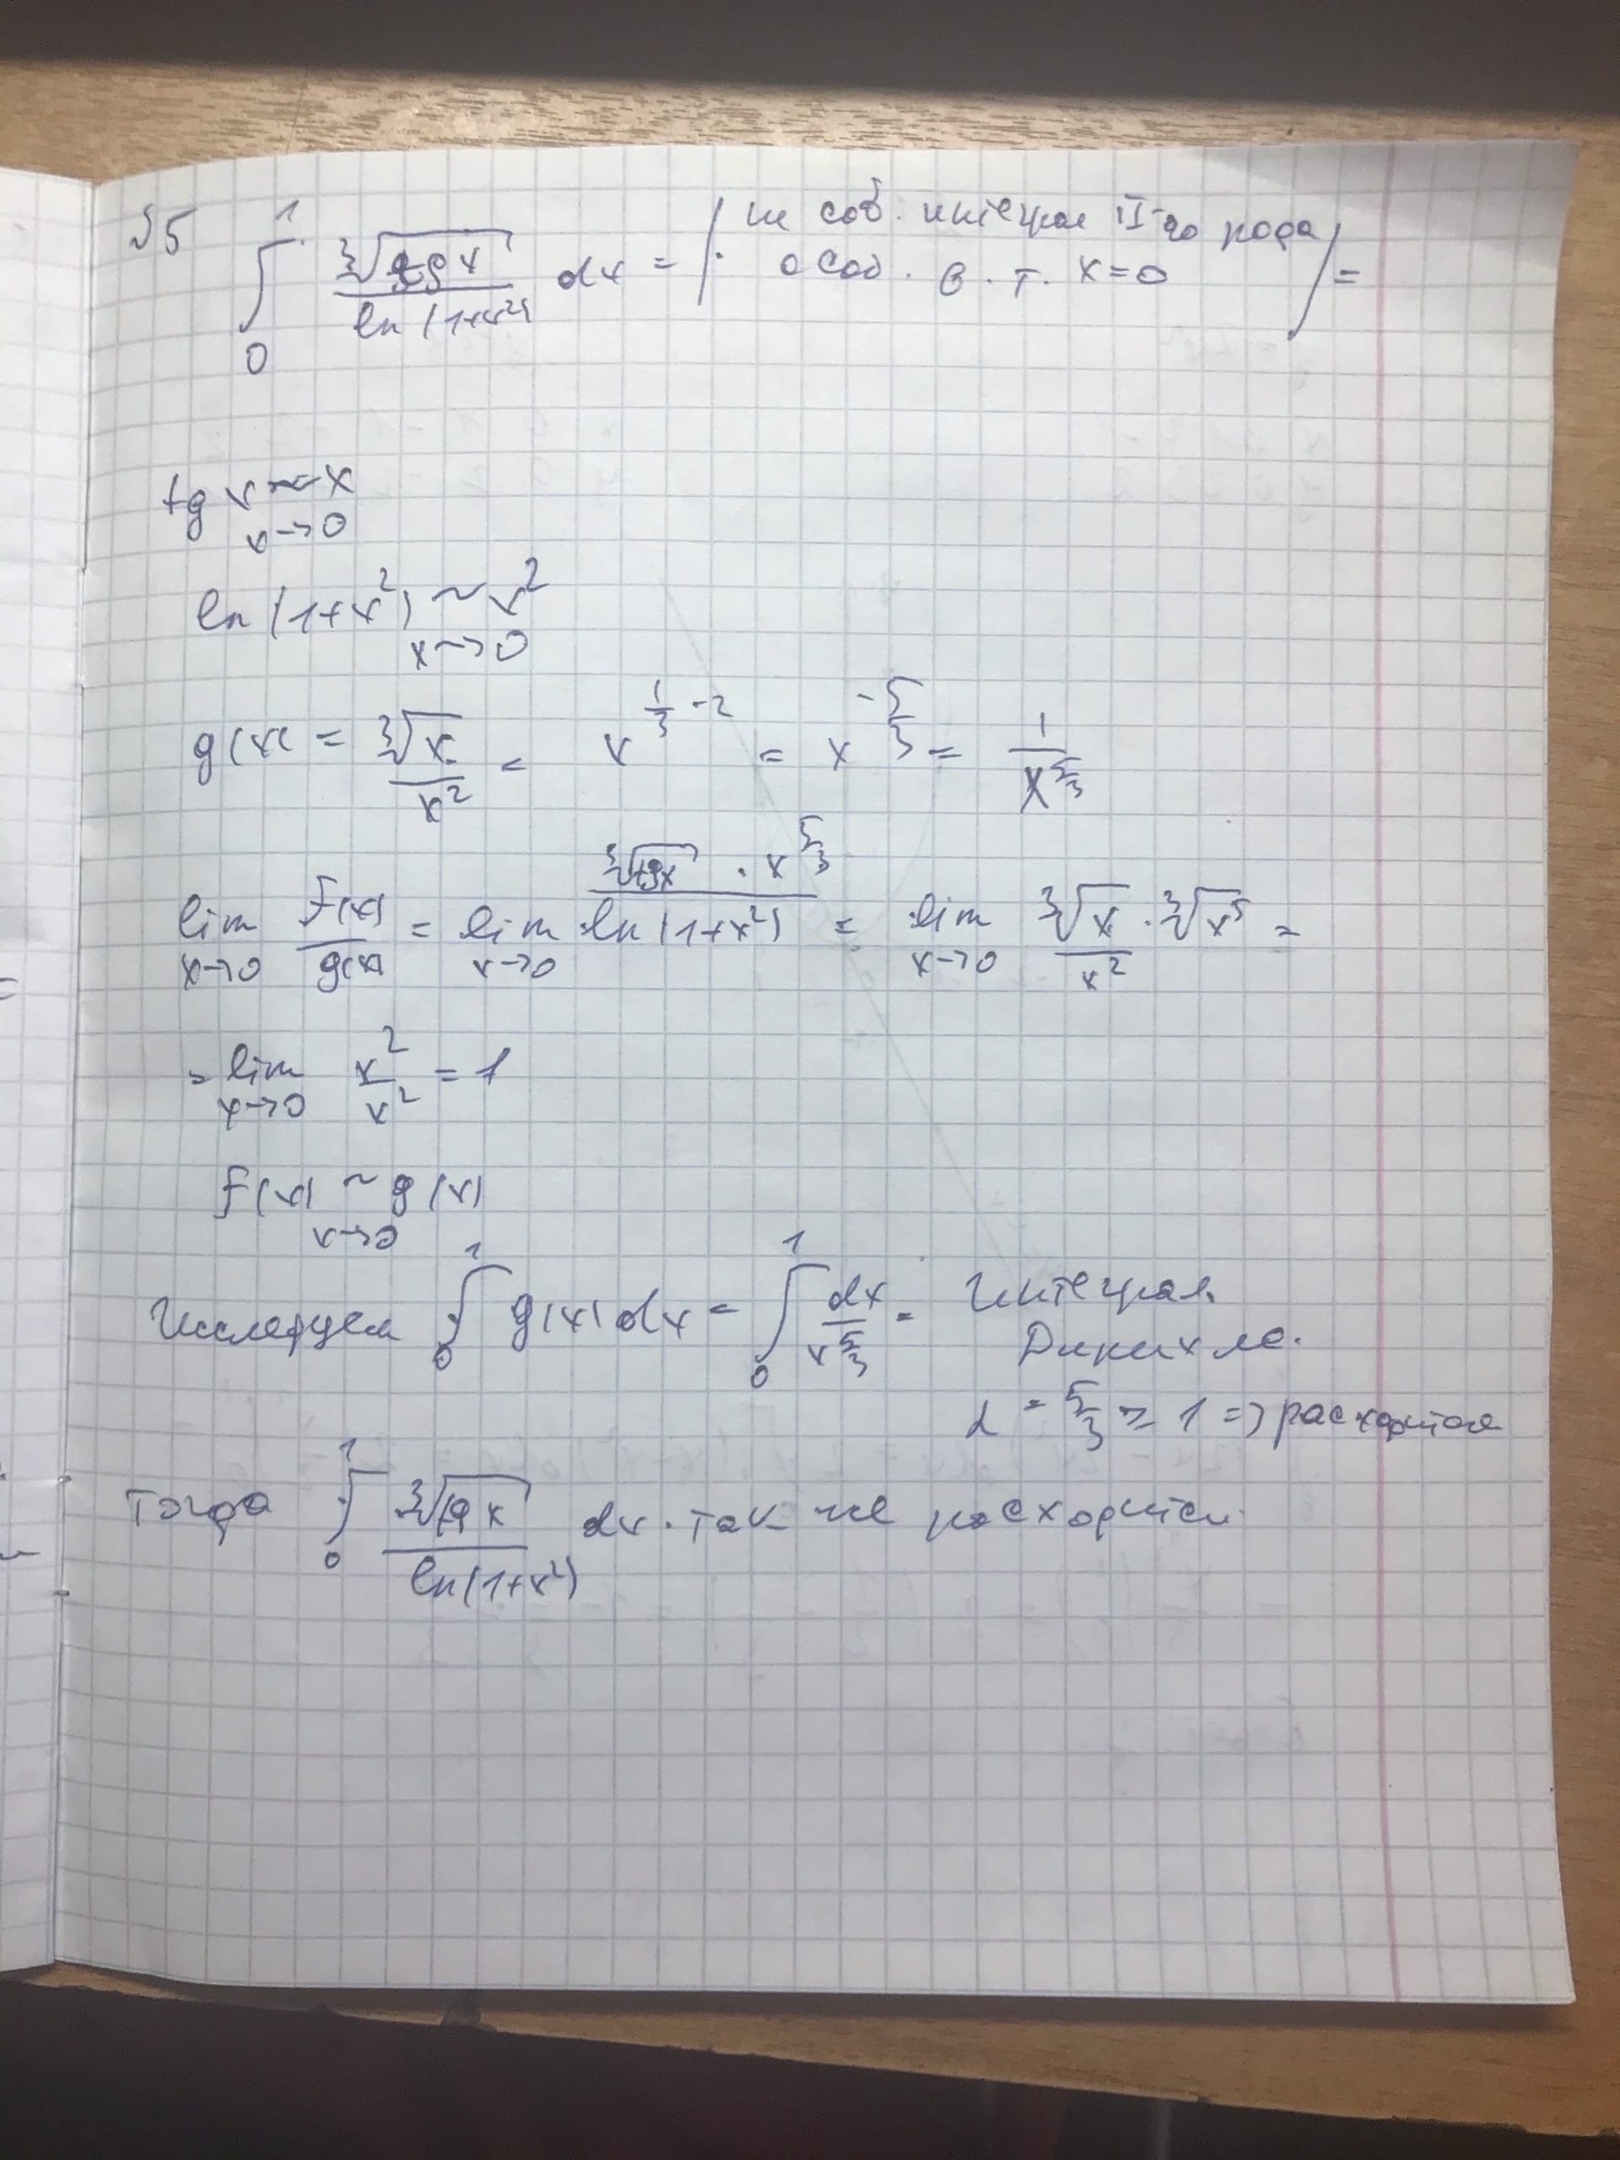 №5 ∫₀¹ ∛(tg x) / ln(1+x²) dx = | не соб. интеграл II-го рода
особ. в т. x=0 | =
tg x ~ x
x→0
ln(1+x²) ~ x²
x→0
g(x) = ∛x / x² = x^(1/3 - 2) = x^(-5/3) = 1 / x^(5/3)
lim x→0 f(x)/g(x) = lim x→0 ∛(tg x) · x^(5/3) / ln(1+x²) = lim x→0 ∛x · ∛x⁵ / x² =
= lim x→0 x² / x² = 1
f(x) ~ g(x)
x→0
Исследуем ∫₀¹ g(x) dx = ∫₀¹ dx / x^(5/3) = Интеграл
Дирихле.
α = 5/3 ≥ 1 => расходится
Тогда ∫₀¹ ∛(tg x) / ln(1+x²) dx. так же расходится.